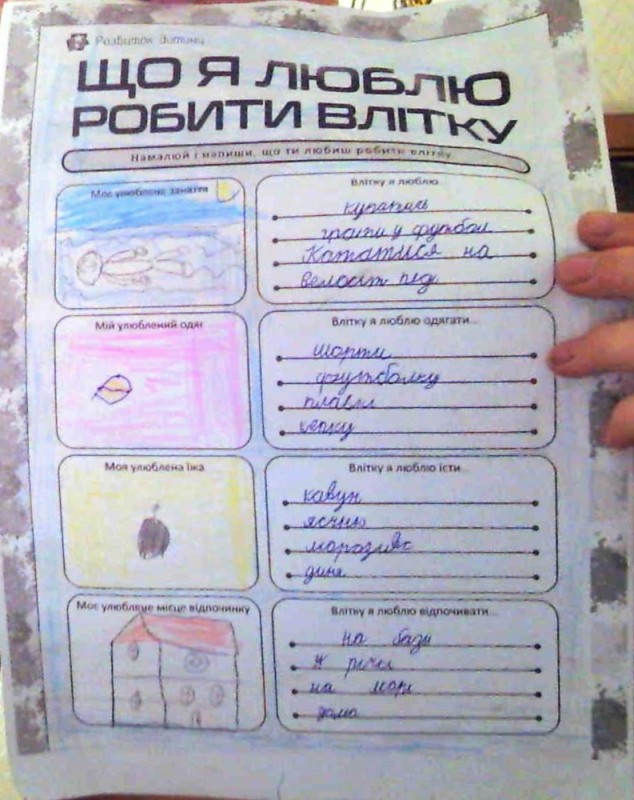 Розвиток дитини
ЩО Я ЛЮБЛЮ
РОБИТИ ВЛІТКУ
Намалюй і напиши, що ти любиш робити влітку
Моє улюблене заняття
Влітку я люблю
купатись
грати у футбол
Кататися на
велосіпед
Мій улюблений одяг
Влітку я люблю одягати...
шорти
футболку
плавки
кепку
Моя улюблена їжа
Влітку я люблю їсти...
кавун
морозиво
диня
Моє улюблене місце відпочинку
Влітку я люблю відпочивати...
на базі
річці
на морі
дома